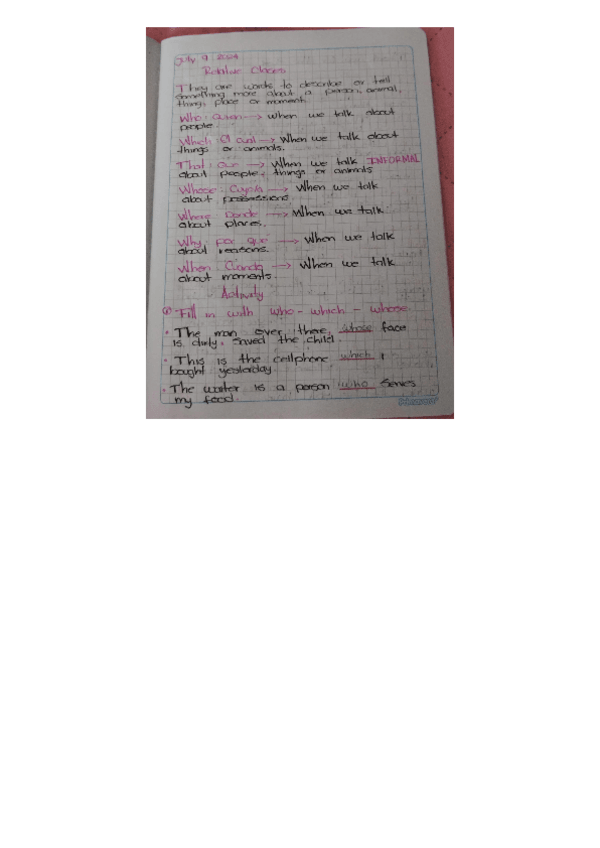 July 9, 2024
Relative Clauses
They are words to describe or tell
something more about a person, animal,
thing, place or moment.
Who: Quien → when we talk about
people.
Which: El cual → When we talk about
things or animals.
That: Que → When we talk INFORMAL
about people, things or animals
Whose: Cuyo/a → When we talk
about possessions.
Where: Donde → When we talk
about places.
Why: por que → When we talk
about reasons.
When: Cuando → When we talk
about moments.
Activity
Fill in with who - which - whose.
• The man over there, whose face
is dirty, saved the child.
• This is the cellphone which I
bought yesterday
• The waiter is a person who serves
my food.